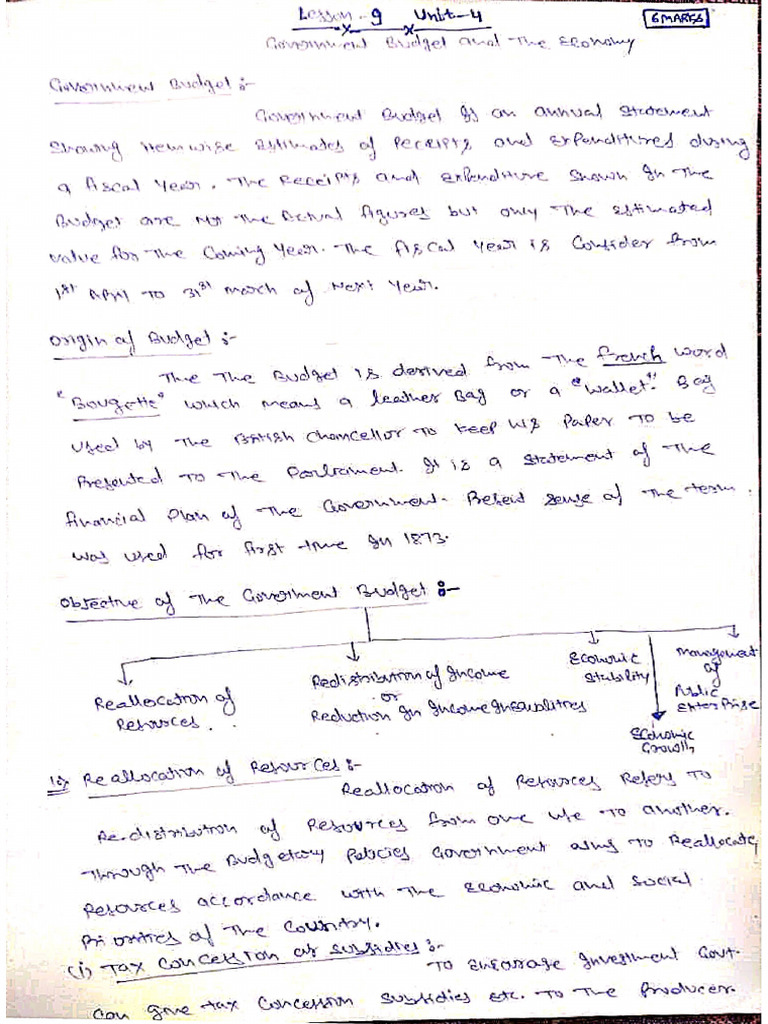 Lesson - 9 Unit - 4
6 MARKS
Government Budget and The Economy
Government Budget :-
Government Budget Is an annual Statement
Showing itemwise Estimates of Receipts and Expenditures during
a fiscal Year. The Receipts and Expenditure Shown In The
Budget are Not The Actual figures but only The Estimated
value for The Coming Year. The fiscal Year is Consider from
1st April To 31st March of Next Year.
Origin of Budget :-
The The Budget is derived from The french word
"Bougette" which means a leather Bag or a "Wallet". Bag
used by The British Chancellor To keep his Paper To be
Presented To The Parliament. It is a Statement of The
financial Plan of The Government. Present sense of The term
was used for first time In 1873.
Objective of The Government Budget :-
Reallocation of
Resources.
Redistribution of Income
or
Reduction In Income Inequalities
Economic
Stability
Economic
Growth
Management
of
Public
Enterprise
Reallocation of Resources :-
Reallocation of Resources Refers To
Re-distribution of Resources from one use To another.
Through The Budgetary Policies Government aims To Reallocate
Resources accordance with The Economic and Social
Priorities of The Country.
(i) Tax Concession or Subsidies :-
To Encourage Investment Govt.
Can give tax Concession Subsidies etc. To The Producer.